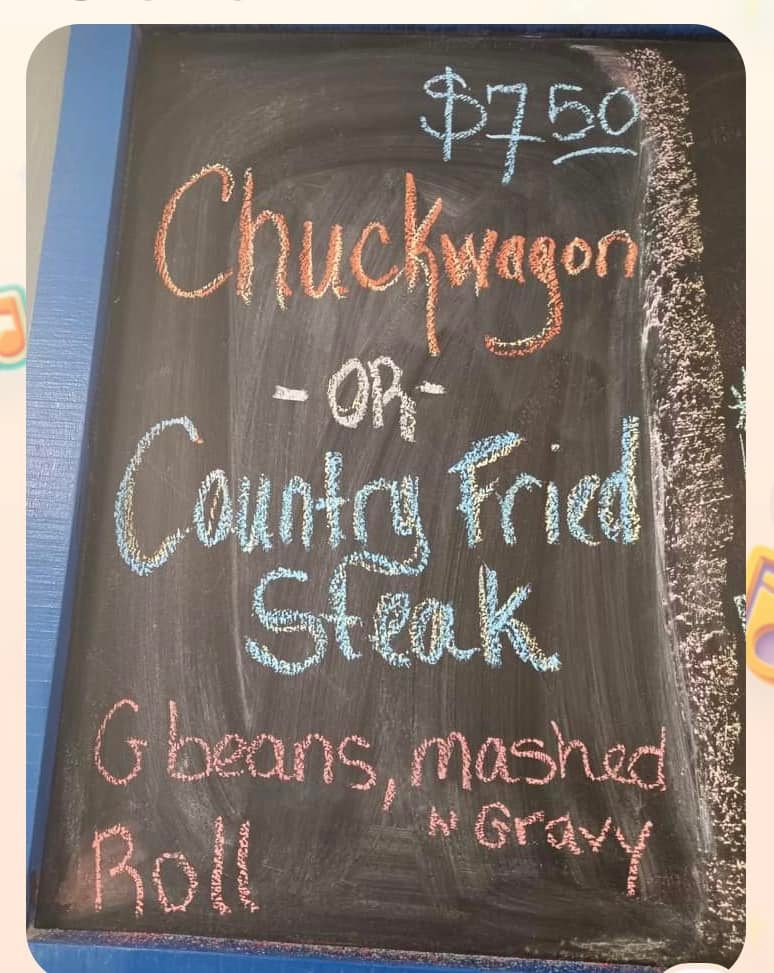 $7 50
Chuckwagon
- OR -
Country Fried
Steak
G beans, mashed
N Gravy
Roll